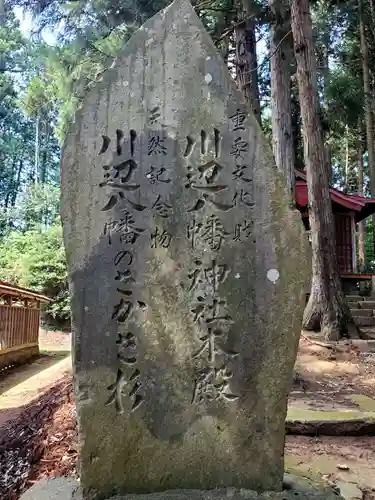 重要文化財
川辺八幡神社本殿
天然記念物
川辺八幡のさかさ杉